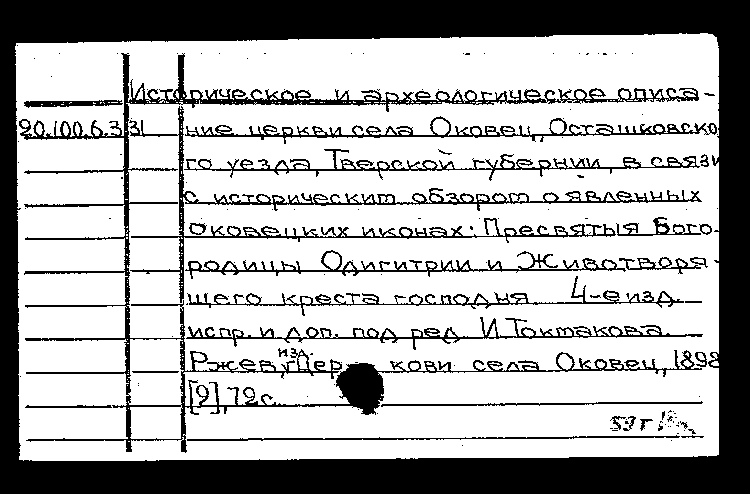 Историческое и археологическое описа-
20.100.6.3 31 ние церкви села Оковец, Осташковско
го уезда, Тверской губернии, в связи
с историческим обзором о явленных
оковецких иконах: Пресвятыя Бого-
родицы Одигитрии и Животворя-
щего креста господня. 4-е изд.
испр. и доп. под ред И. Токмакова.
Ржев, изд. Цер кови села Оковец, 1898
[2], 72 с.
59 г